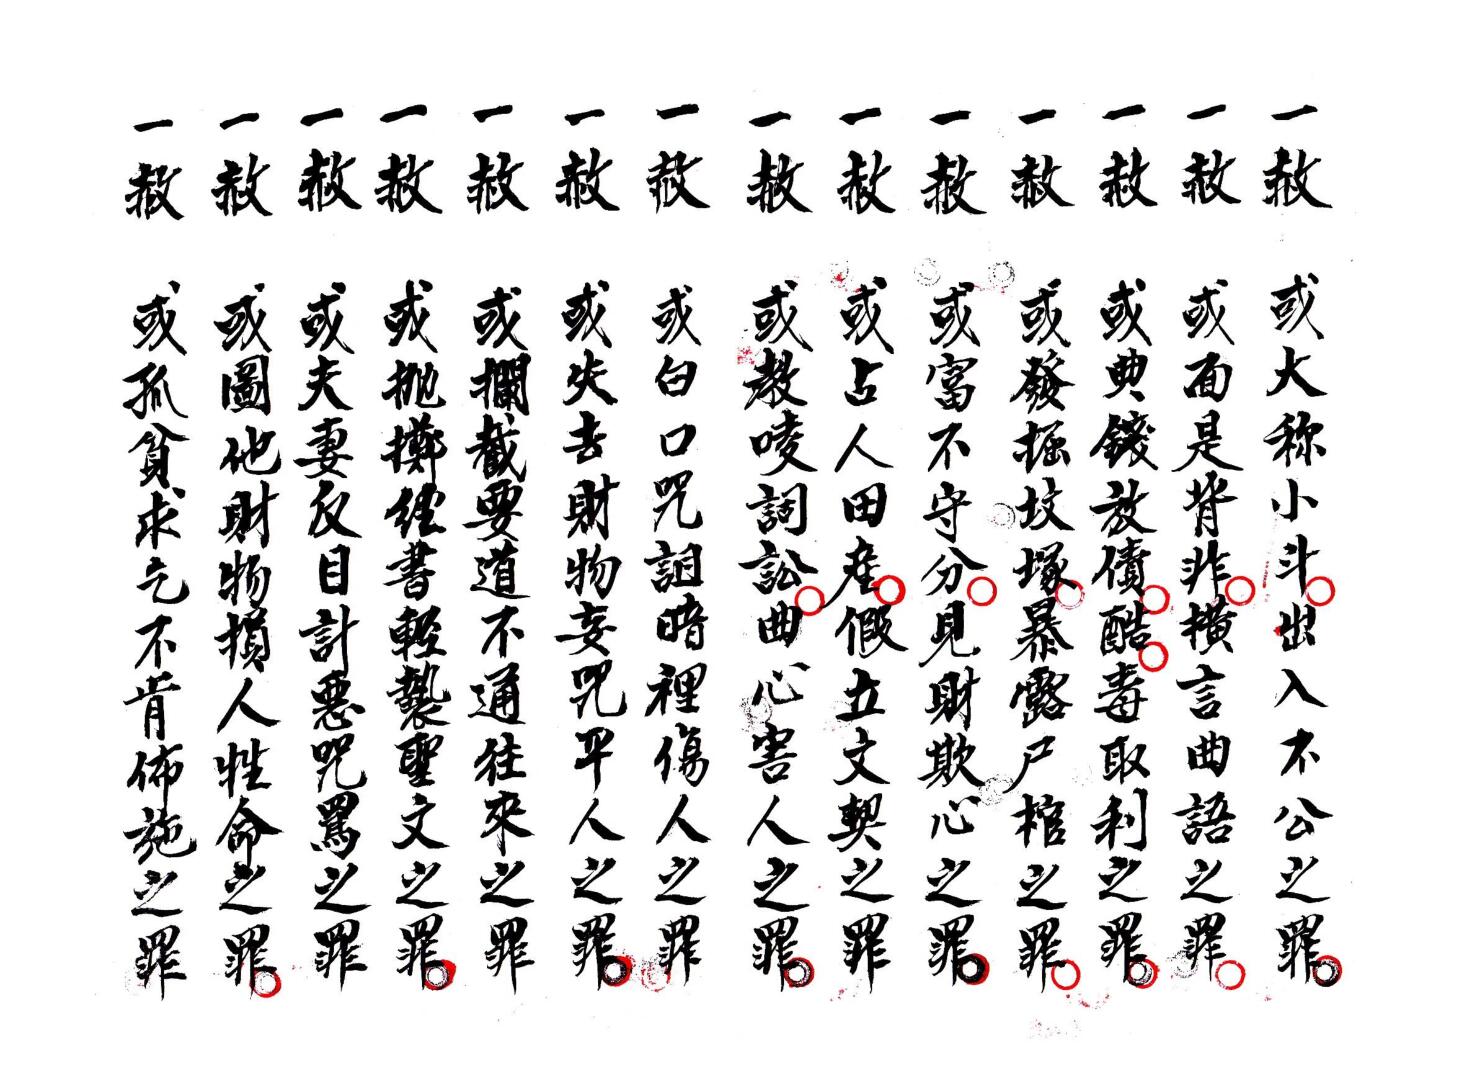 一赦 或大称小斗出入不公之罪
一赦 或面是背非横言曲語之罪
一赦 或典錢放債酷毒取利之罪
一赦 或發掘坟塚暴露尸棺之罪
一赦 或富不守分見財欺心之罪
一赦 或占人田產假立文契之罪
一赦 或教唆詞訟曲心害人之罪
一赦 或白口咒詛暗裡傷人之罪
一赦 或失去財物妄咒平人之罪
一赦 或攔截要道不通往來之罪
一赦 或抛擲经書輕褻聖文之罪
一赦 或夫妻反目計惡咒罵之罪
一赦 或圖他財物損人性命之罪
一赦 或孤貧求乞不肯佈施之罪